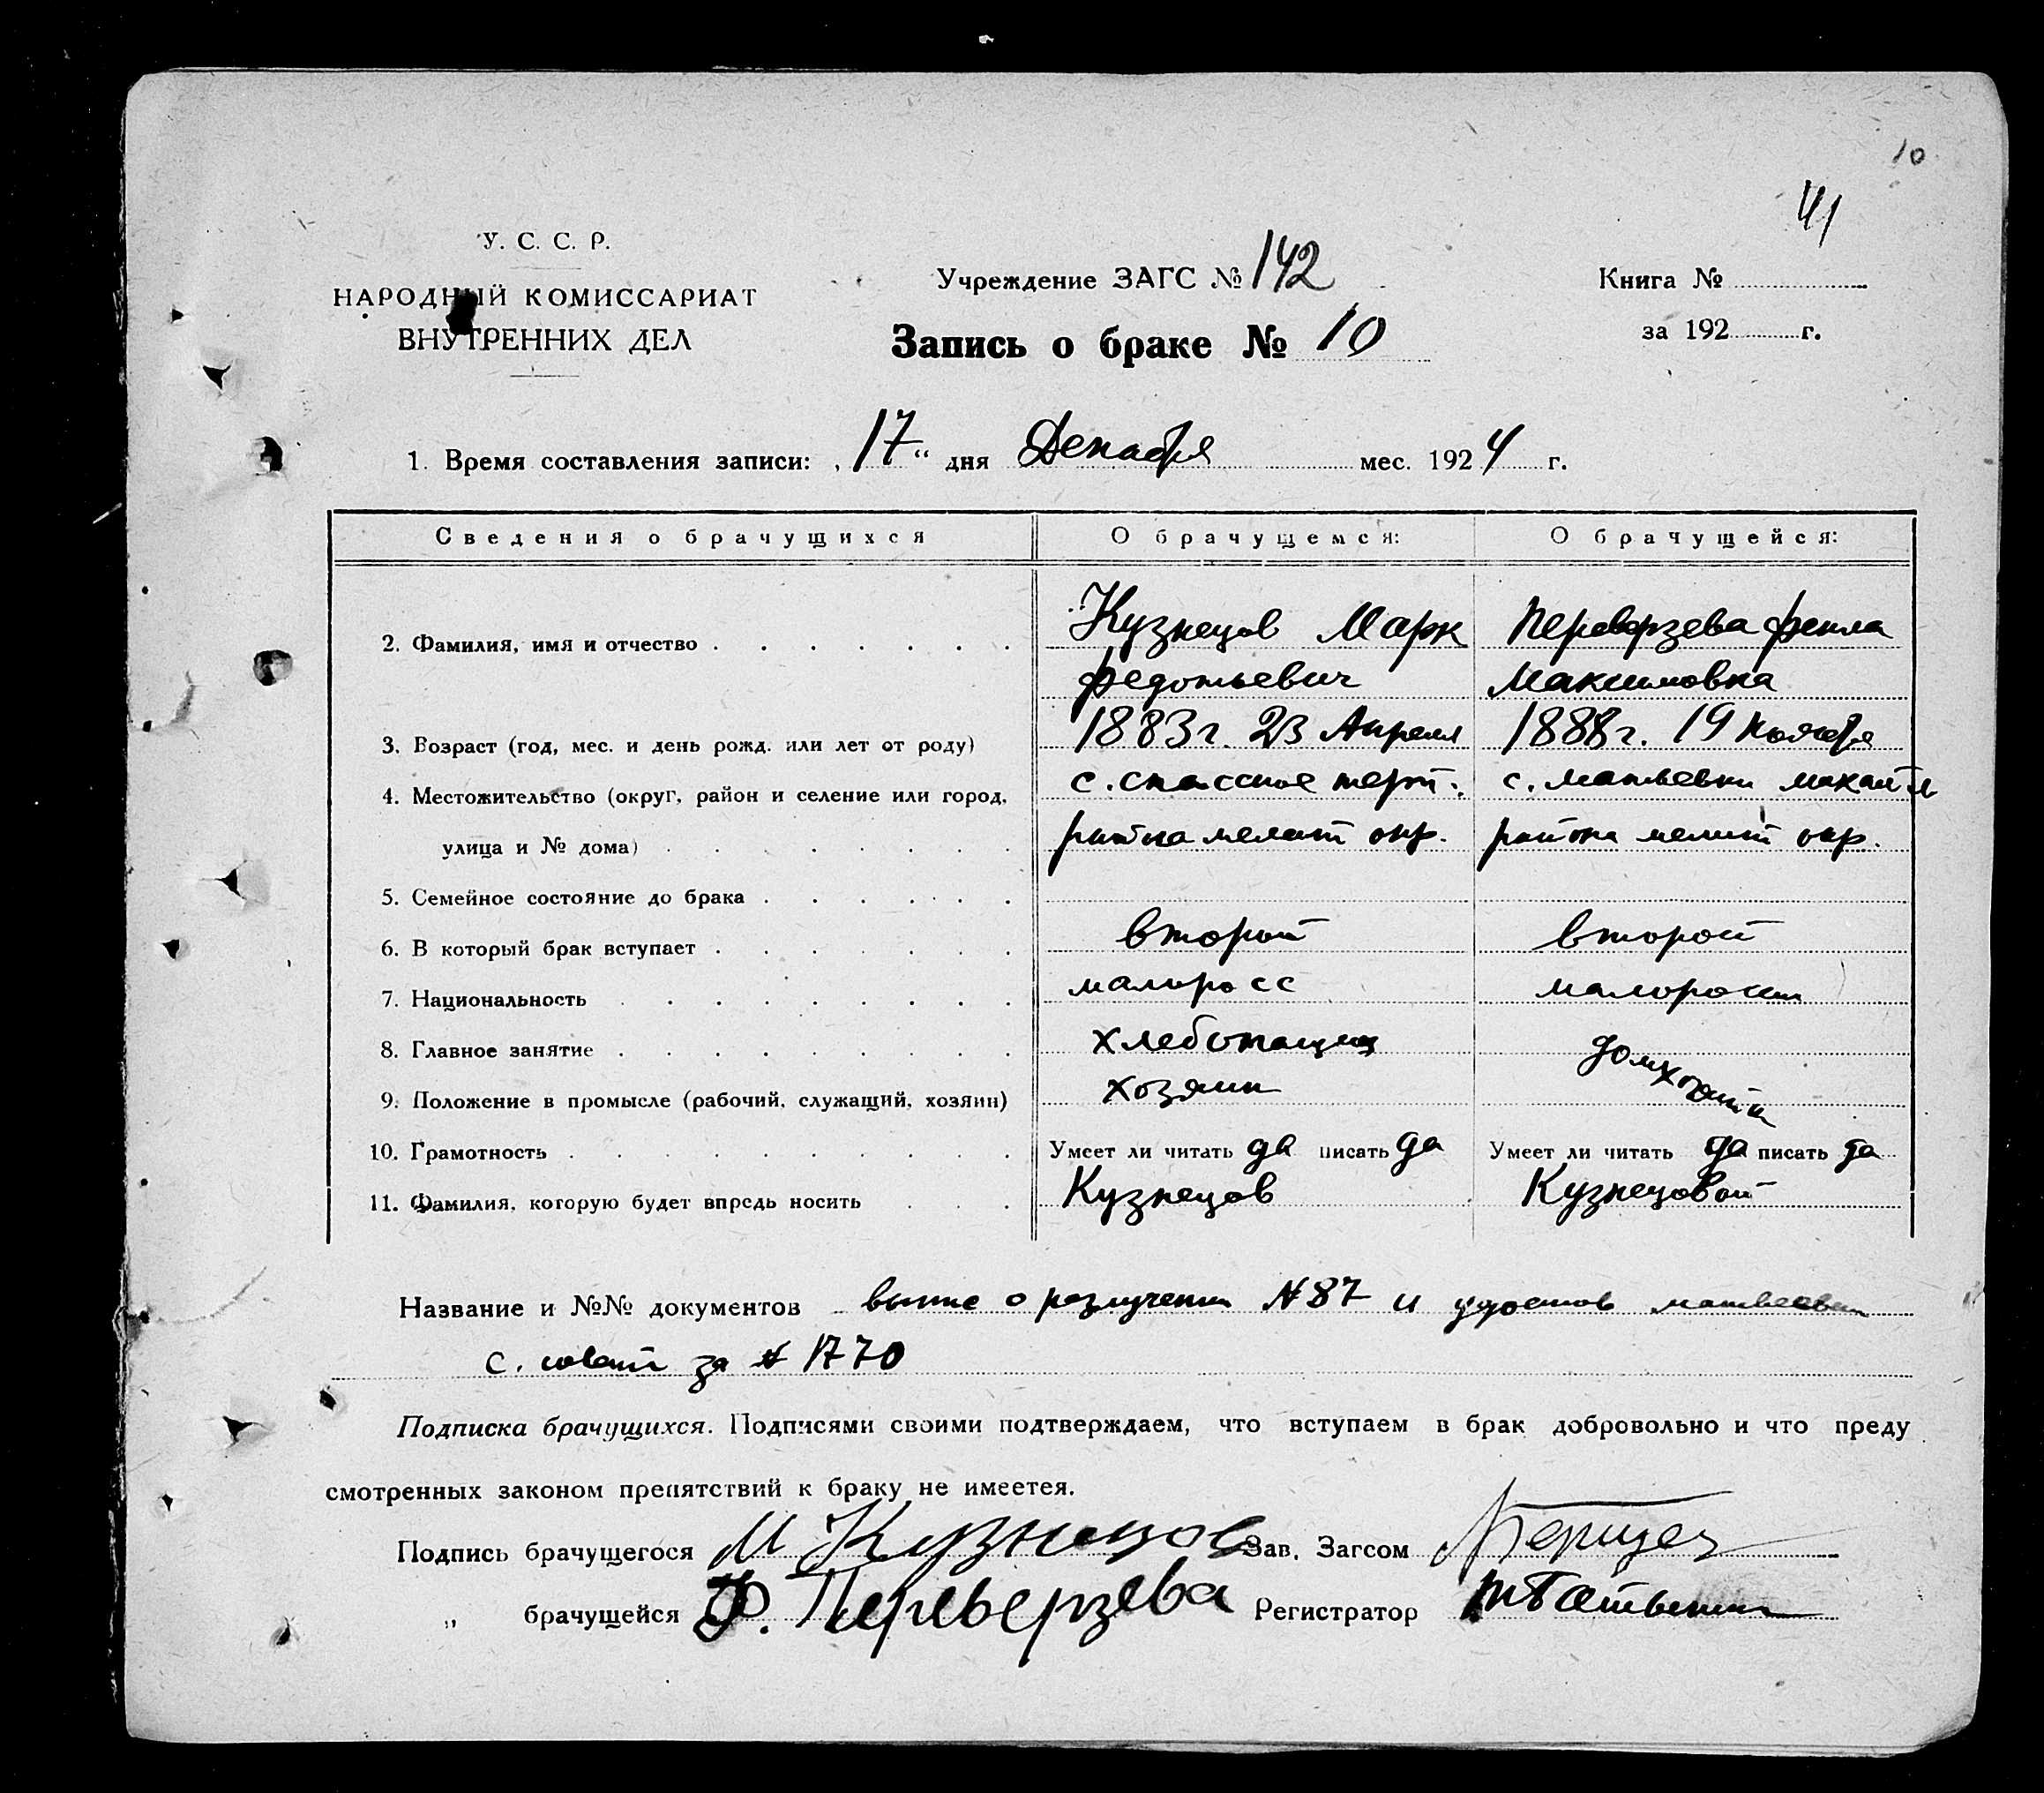 10
41
У. С. С. Р.
НАРОДНЫЙ КОМИССАРИАТ
ВНУТРЕННИХ ДЕЛ
Учреждение ЗАГС № 142
Книга №
Запись о браке № 10
за 192 г.
1. Время составления записи: „17“ дня Декабря мес. 1924 г.
Сведения о брачущихся О брачущемся: О брачущейся:
2. Фамилия, имя и отчество Кузнецов Марк Переверзева Фекла
Федотьевич Максимовна
3. Возраст (год, мес. и день рожд. или лет от роду) 1883 г. 23 Апреля 1888 г. 19 Ноября
4. Местожительство (округ, район и селение или город, с. спасское терп. с. матвеевки михайл
улица и № дома) района мелит окр. района мелит окр.
5. Семейное состояние до брака
6. В который брак вступает второй второй
7. Национальность малоросс малоросси
8. Главное занятие хлебопащец домхозяйк
9. Положение в промысле (рабочий, служащий, хозяин) хозяин
10. Грамотность Умеет ли читать да писать да Умеет ли читать да писать да
11. Фамилия, которую будет впредь носить Кузнецов Кузнецовой
Название и №№ документов о разлучении №87 и удостов матвеевки
с. за № 1770
Подписка брачущихся. Подписями своими подтверждаем, что вступаем в брак добровольно и что преду
смотренных законом препятствий к браку не имеетея.
Подпись брачущегося М Кузнецов Зав. Загсом
„ брачущейся Ф. Переверзева Регистратор